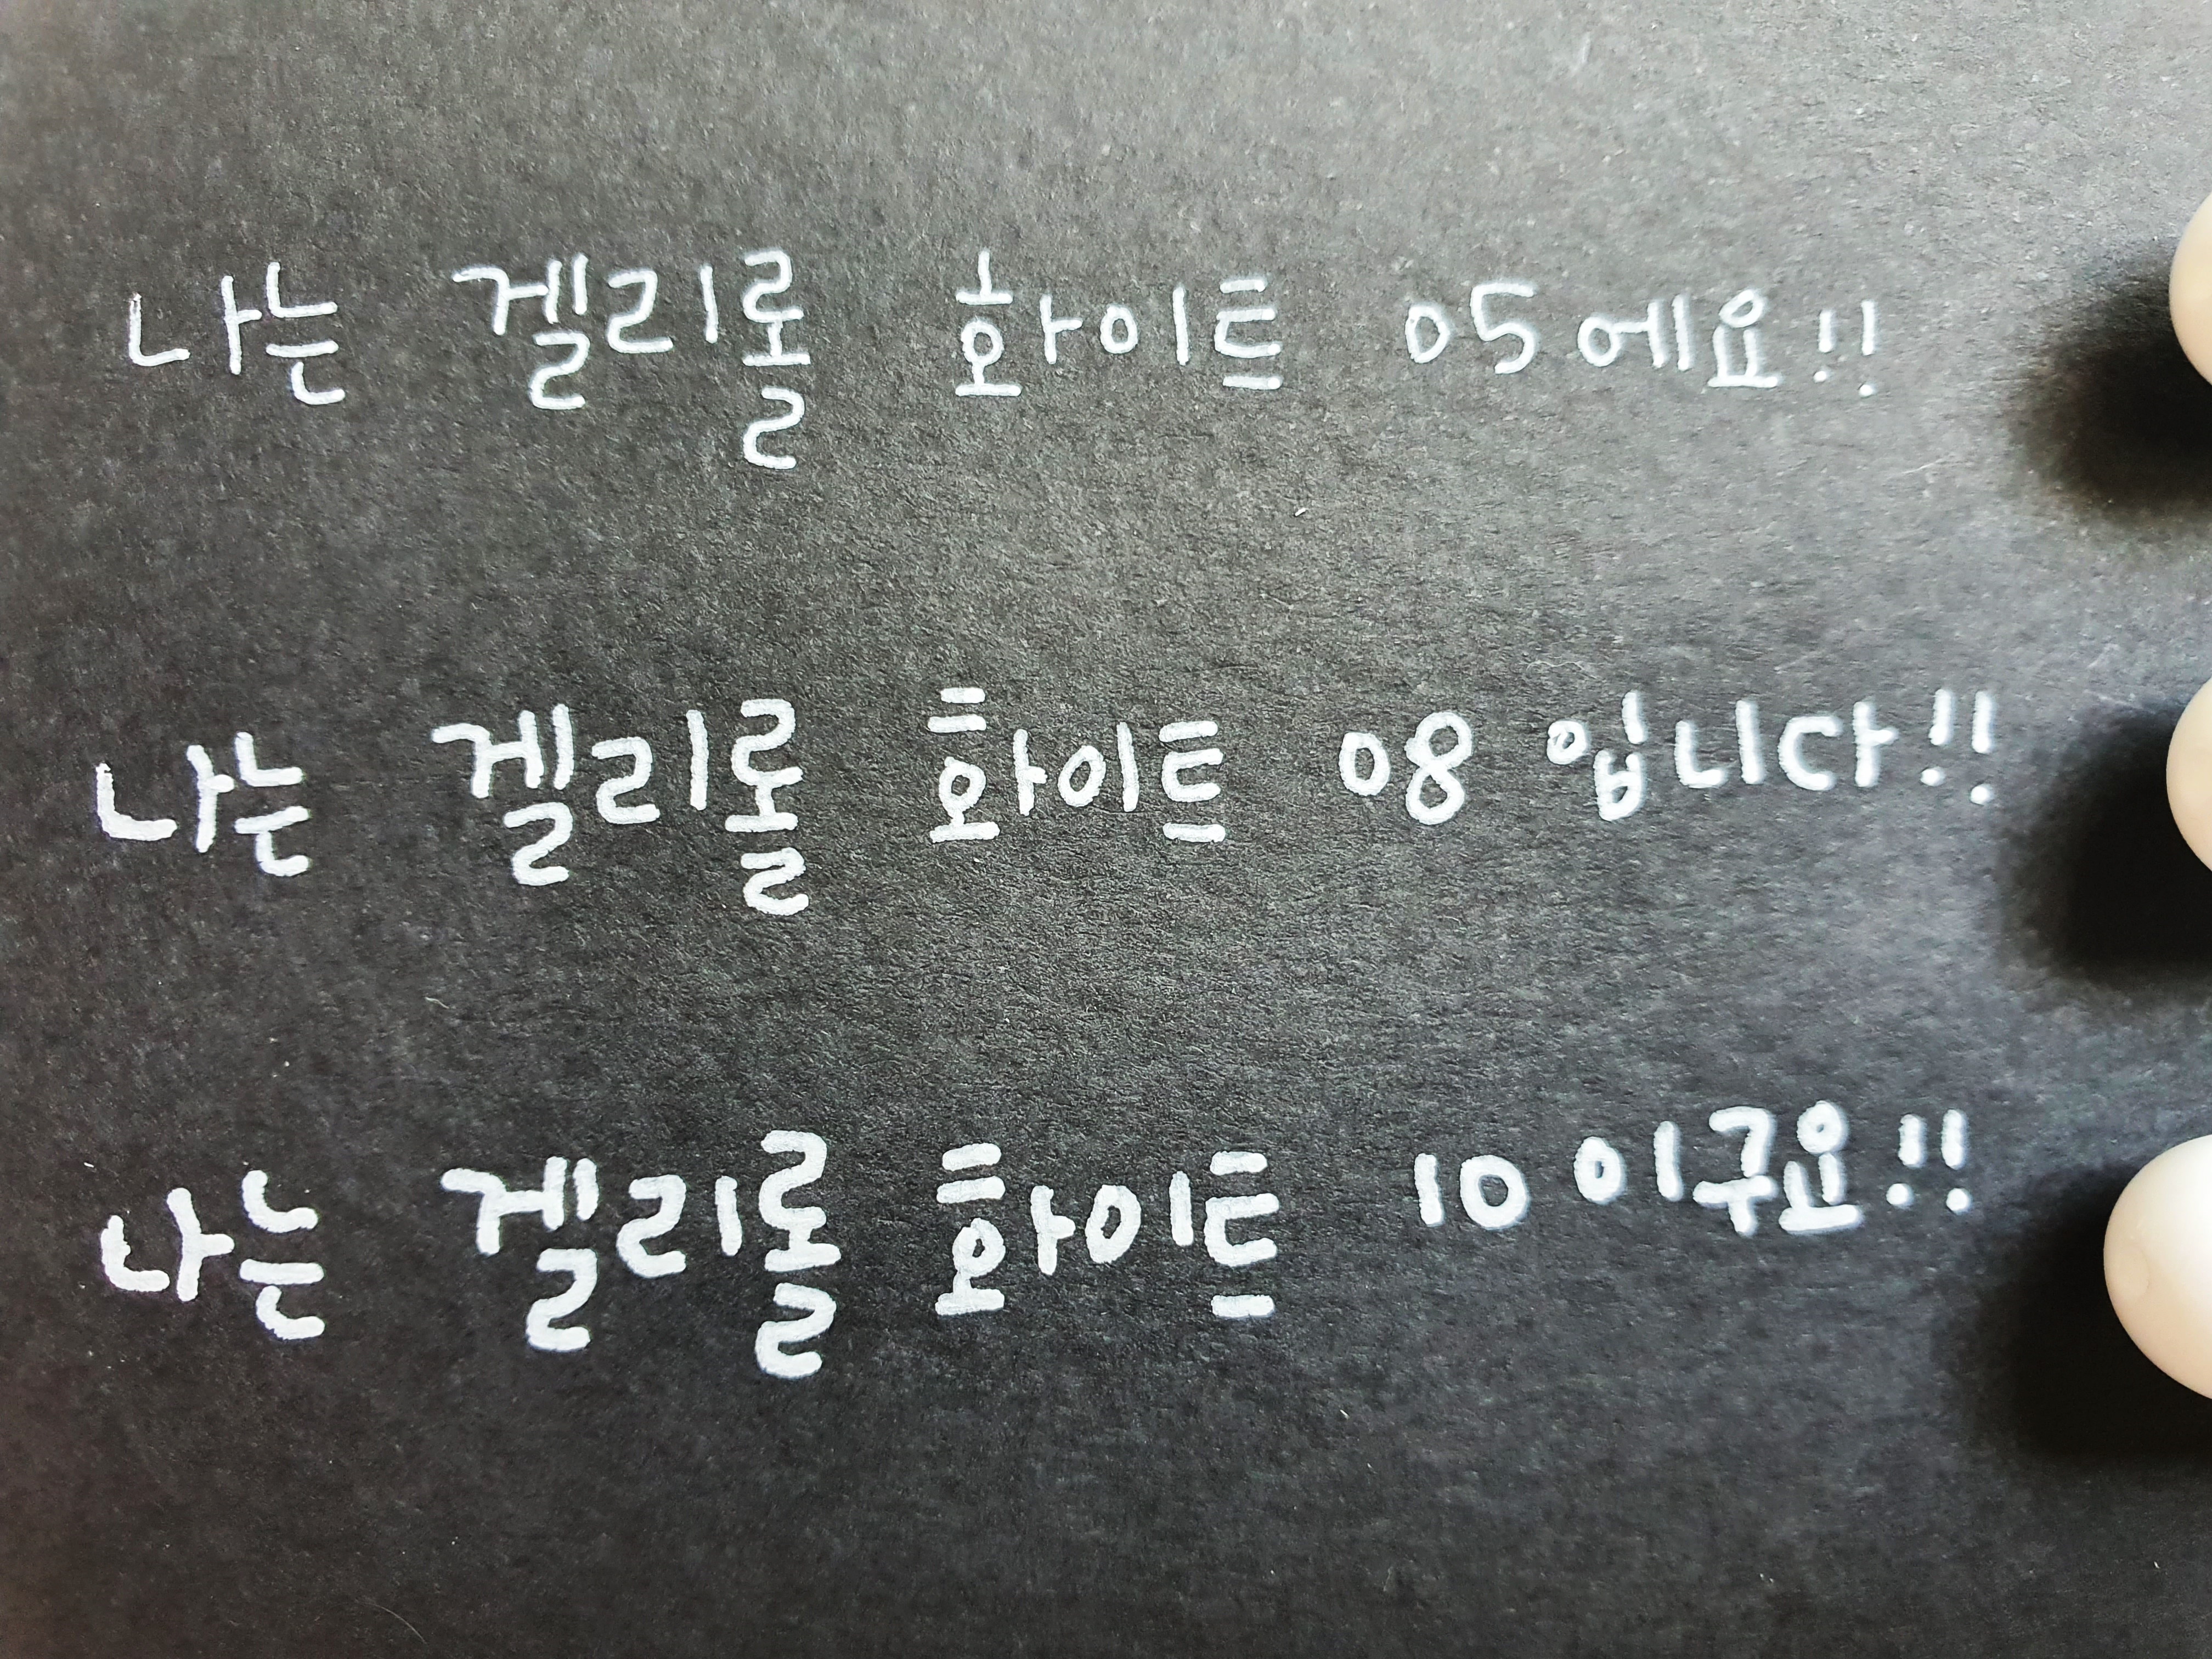 나는 겔리롤 화이트 05에요!!
나는 겔리롤 화이트 08 입니다!!
나는 겔리롤 화이트 10 이구요!!